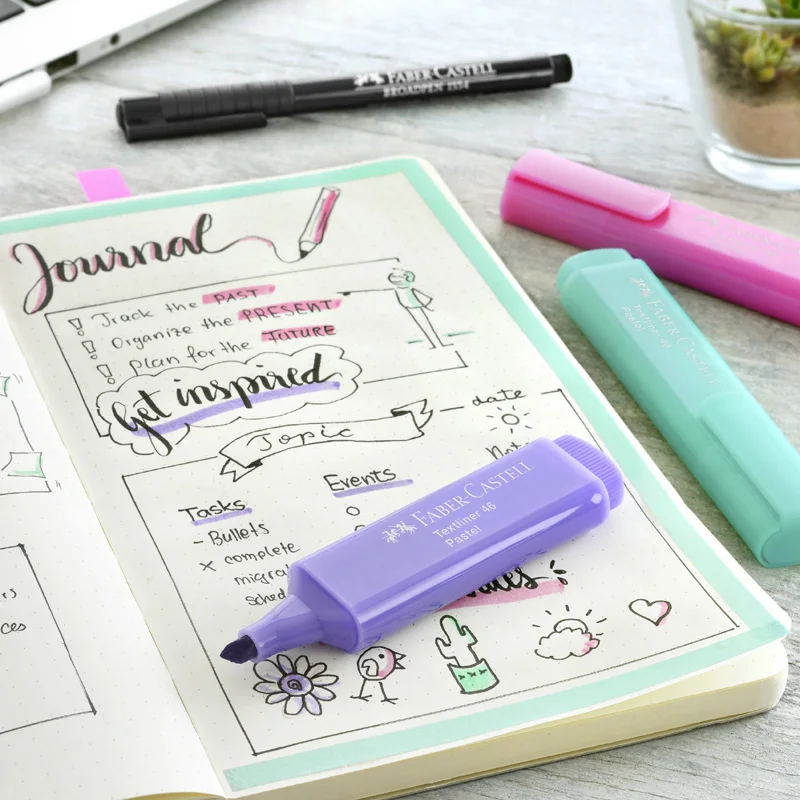 FABER-CASTELL
BROADPEN 1554
Journal
! Track the PAST
! Organize the PRESENT
! Plan for the FUTURE
Get inspired
Topic
date
Tasks
Events
- Bullets
× complete
FABER-CASTELL
Textliner 46
Pastel
FABER-CASTELL
Textliner 46
Pastel